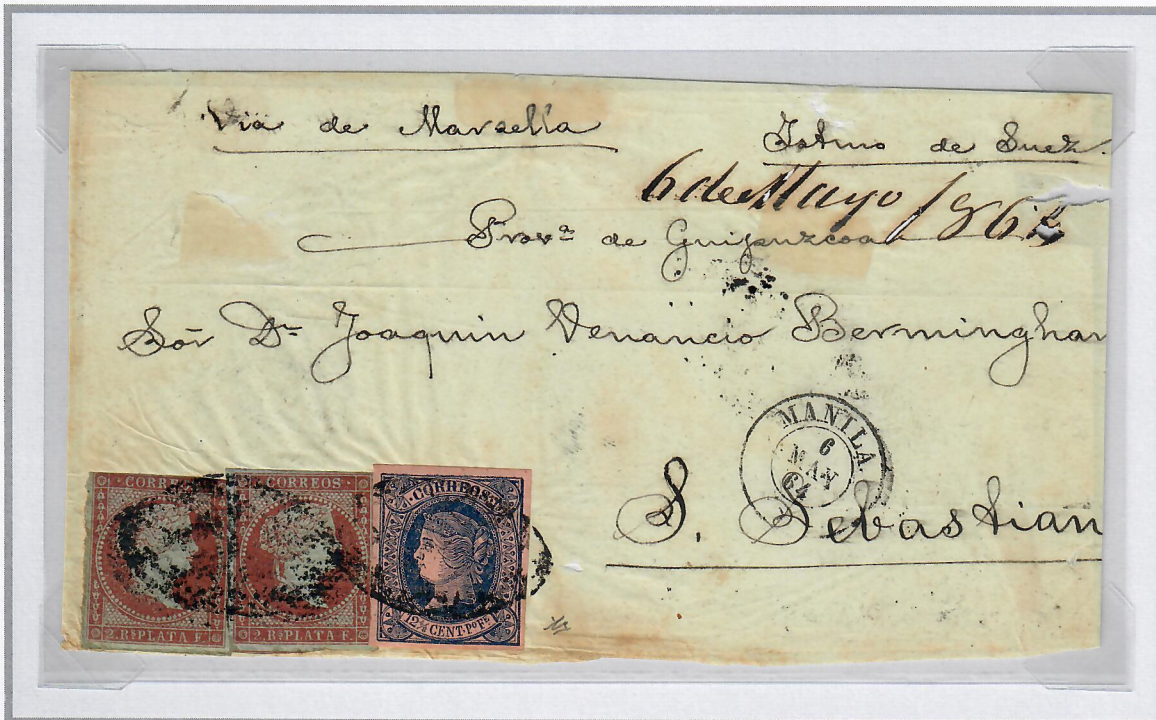 Via de Marsella
Istmo de Suez.
6 de Mayo 1864
Prov.ª de Guipuzcoa
Sōr Dn Joaquin Venancio Bermingham
MANILA
6
MAY
64
S. Sebastian
CORREOS
2. Rs PLATA F.
CORREOS
2. Rs PLATA F.
CORREOS
12 4/8 CENT. Po Fe